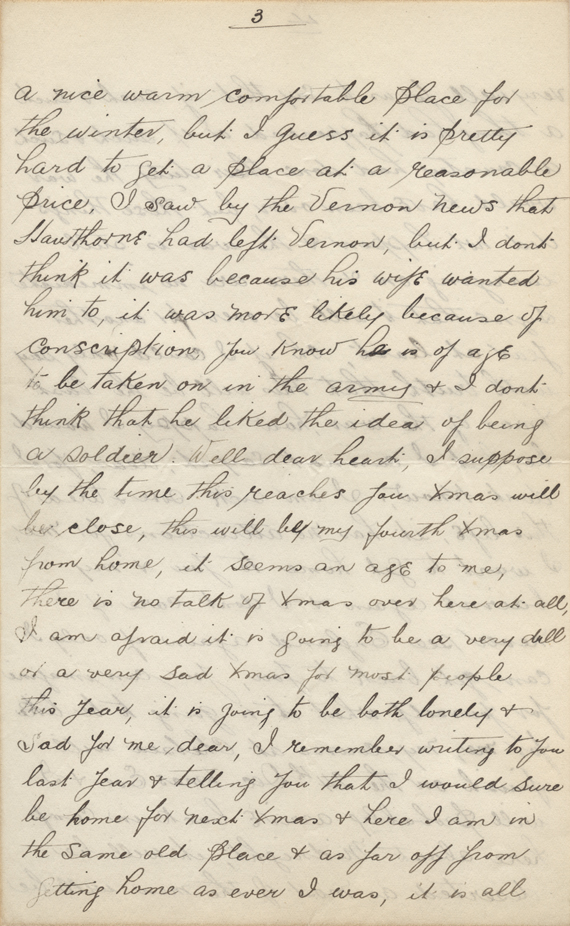 3
a nice warm comfortable place for
the winter, but I guess it is pretty
hard to get a place at a reasonable
price, I saw by the Vernon news that
Hawthorne had left Vernon, but I dont
think it was because his wife wanted
him to, it was more likely because of
conscription you know he is of age
to be taken on in the army & I dont
think that he liked the idea of being
a soldier. Well dear heart, I suppose
by the time this reaches you Xmas will
be close, this will be my fourth Xmas
from home, it seems an age to me,
there is no talk of Xmas over here at all,
I am afraid it is going to be a very dull
or a very sad Xmas for most people
this year, it is going to be both lonely &
sad for me, dear, I remember writing to you
last year & telling you that I would sure
be home for next Xmas & here I am in
the same old place & as far off from
getting home as ever I was, it is all